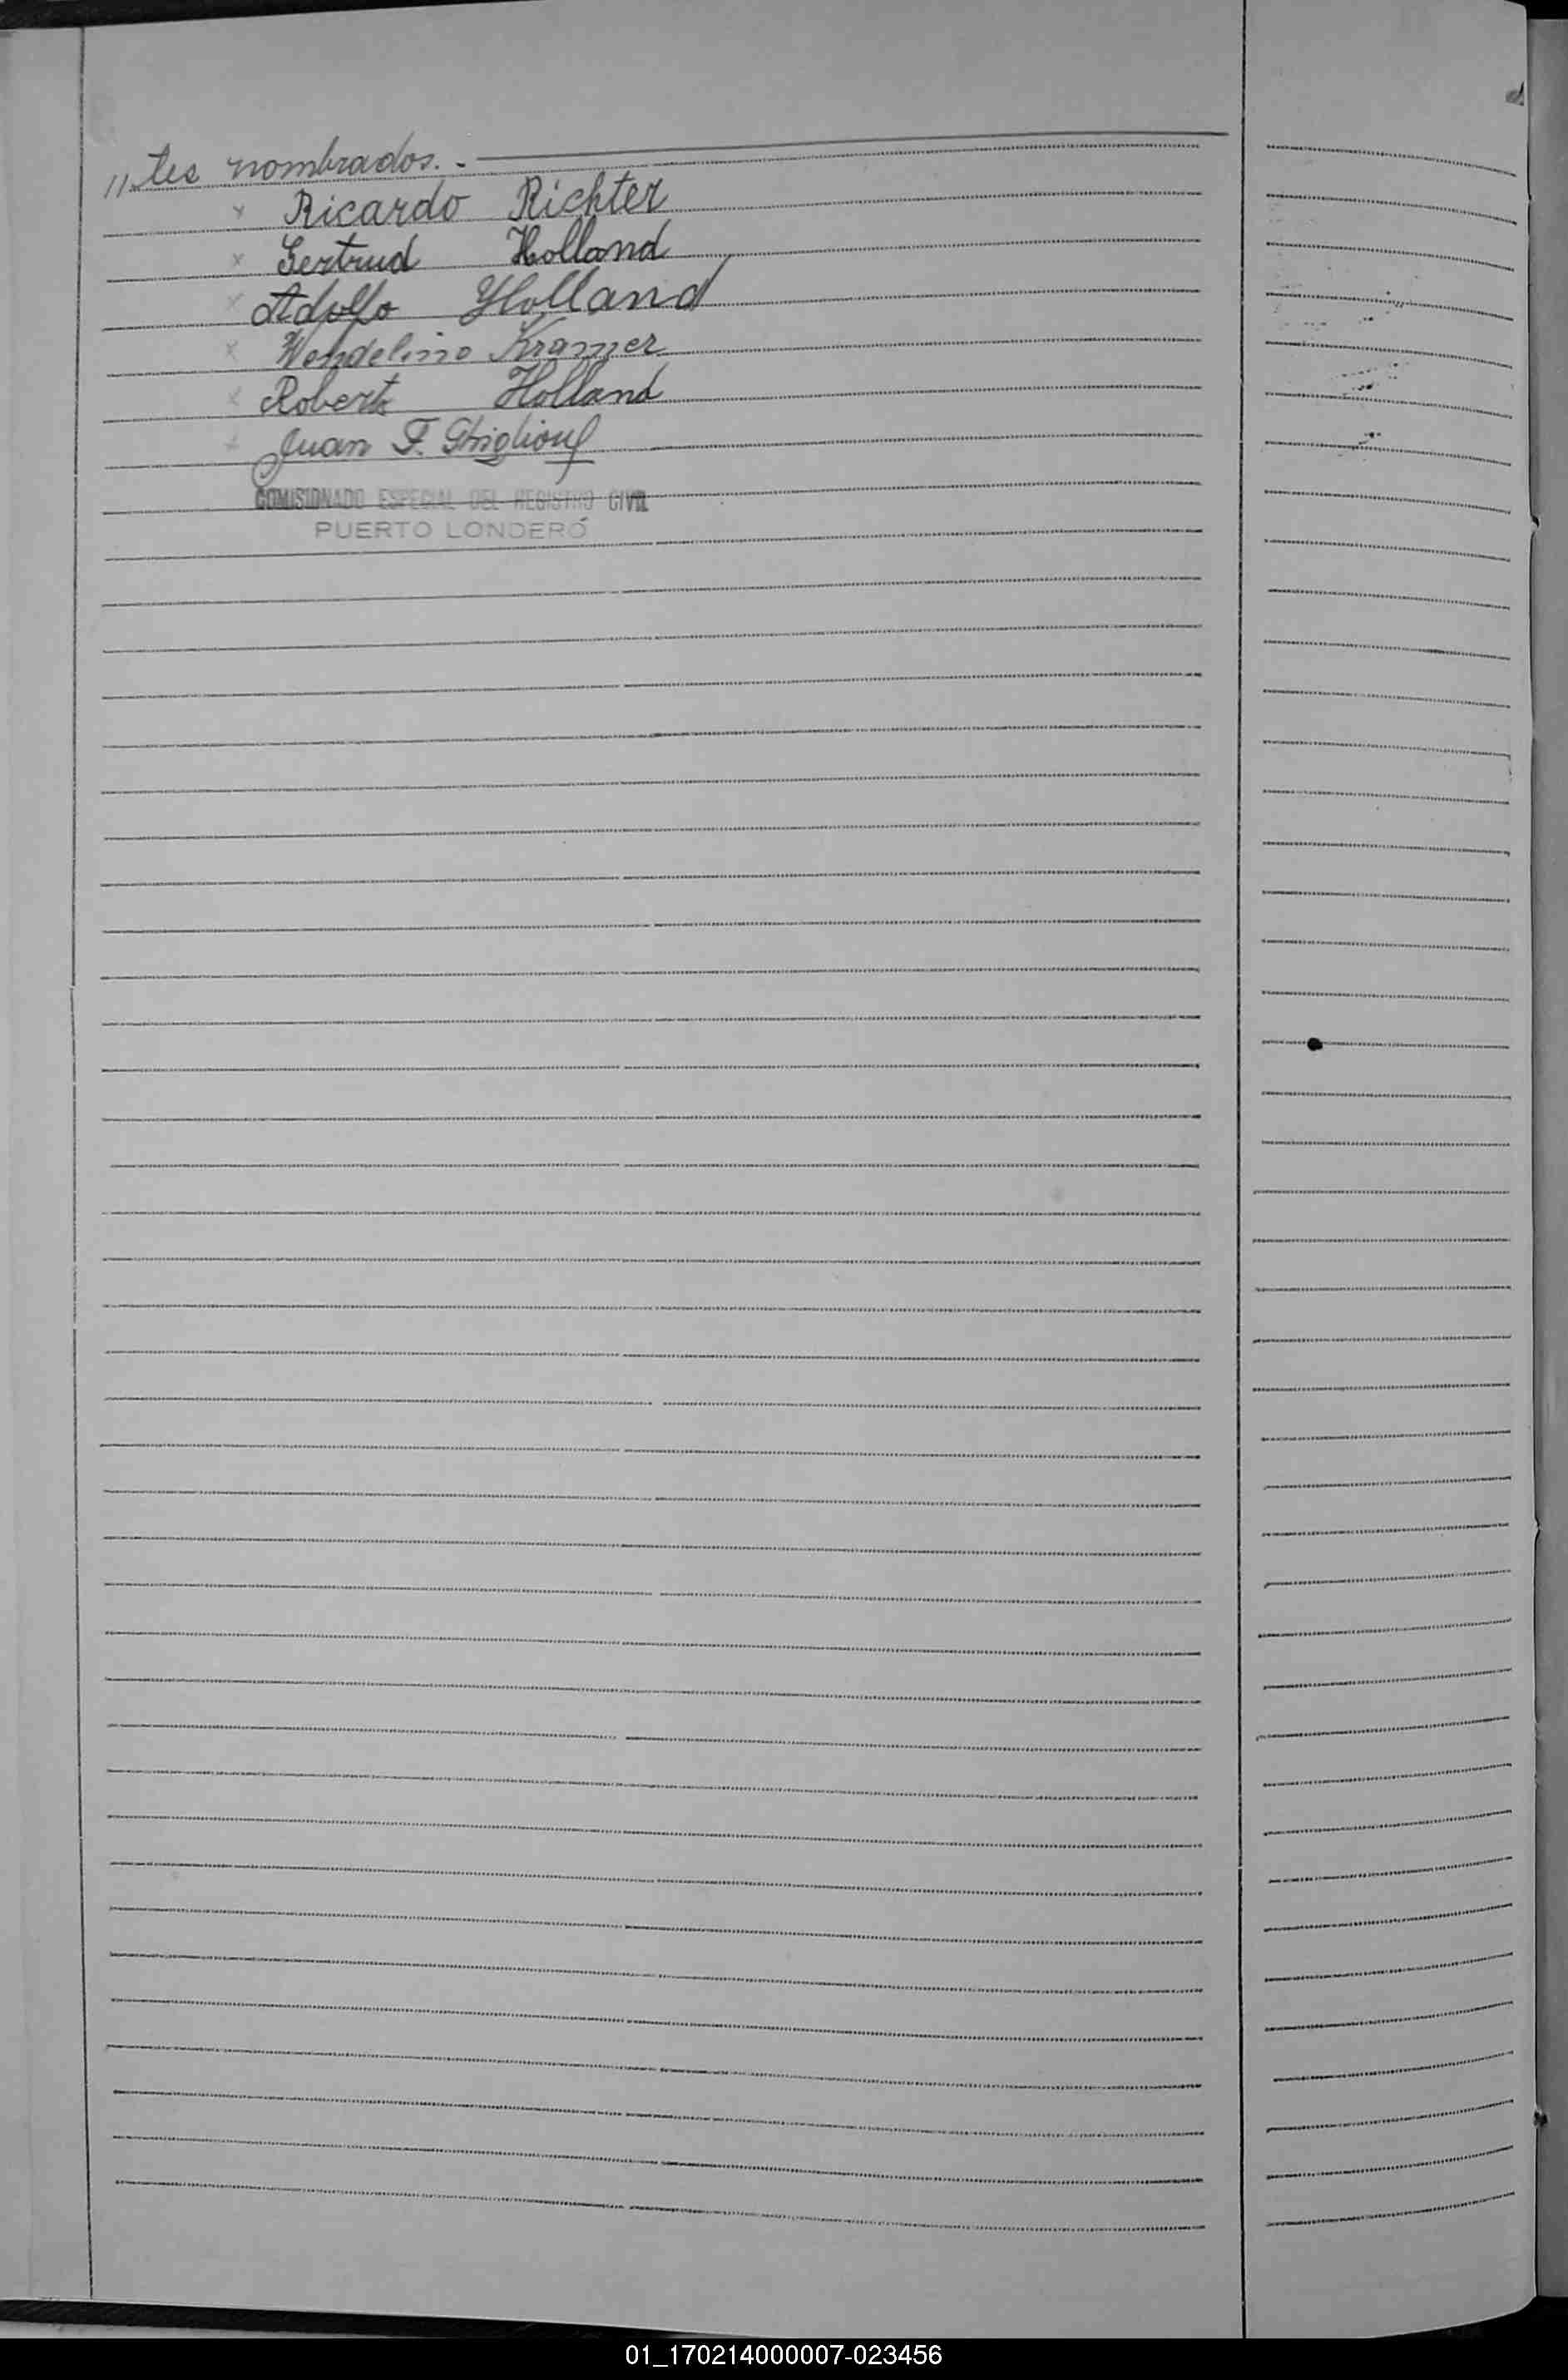 "tes nombrados. -
x Ricardo Richter
x Gertrud Holland
x Adolfo Holland
x Wendelino Kramer
x Roberto Holland
x Juan F.
COMISIONADO ESPECIAL DEL REGISTRO CIVIL
PUERTO LONDERÓ
01_170214000007-023456